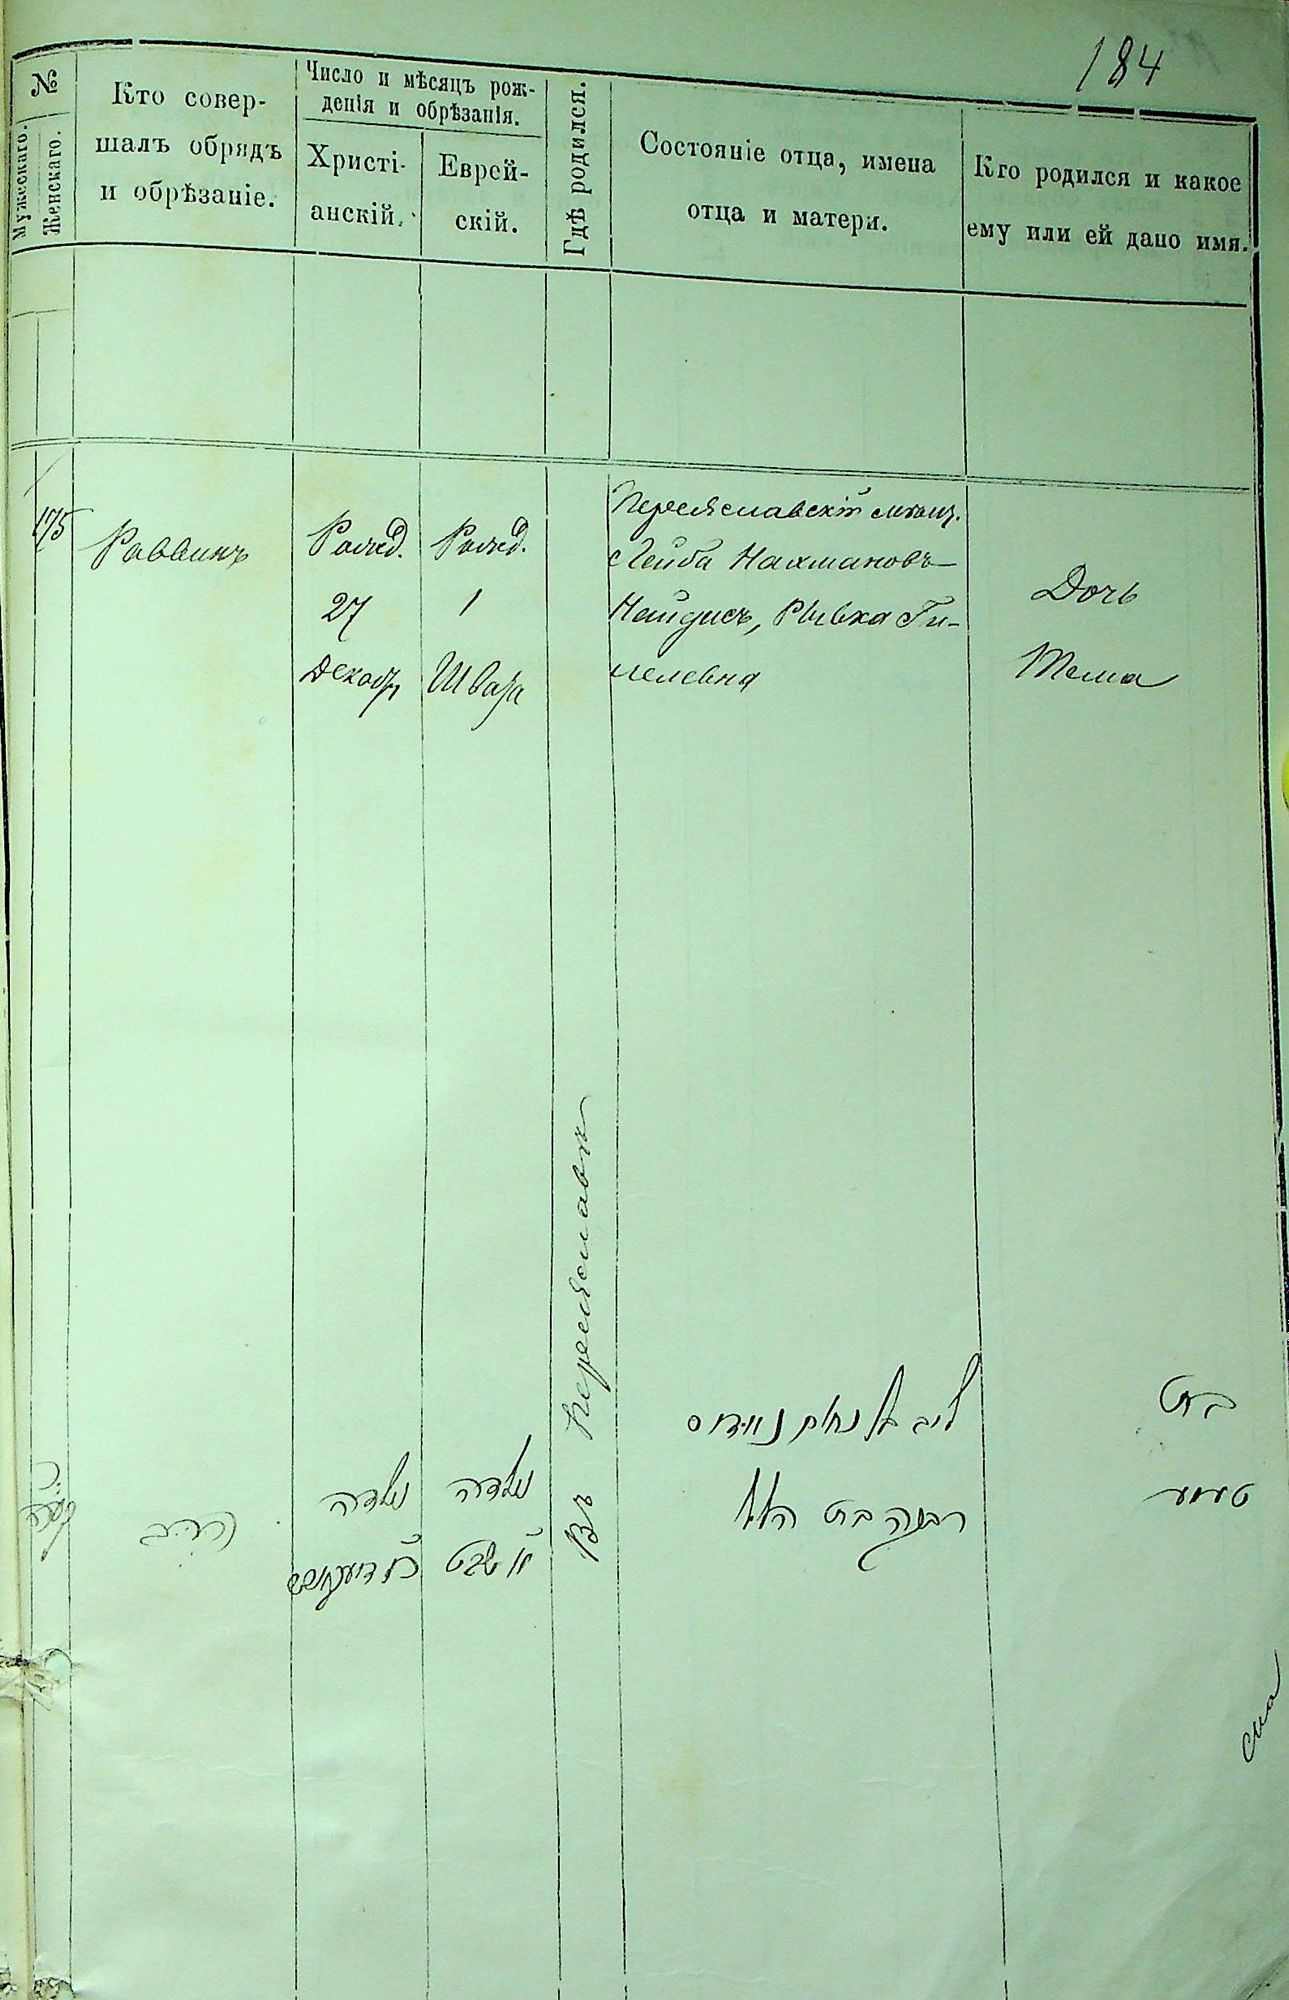 184
№
Мужескаго.
Женскаго.
Кто совер-
шалъ обрядъ
и обрѣзаніе.
Число и мѣсяцъ рож-
денія и обрѣзанія.
Христі-
анскій.
Еврей-
скій.
Гдѣ родился.
Состояніе отца, имена
отца и матери.
Кто родился и какое
ему или ей дано имя.
175
Раввинъ
Рожд.
27
Декабр
Рожд.
1
Швата
Переяславскій мѣщ.
Лейба Нахмановъ
Найдисъ, Рывка Ги-
лелевна
Дочь
Тема
Въ Переяславѣ
נולדה
נולדה
שבט
ליב בן נחמן ניידיס
רבקה בת הלל
בת
טעמע